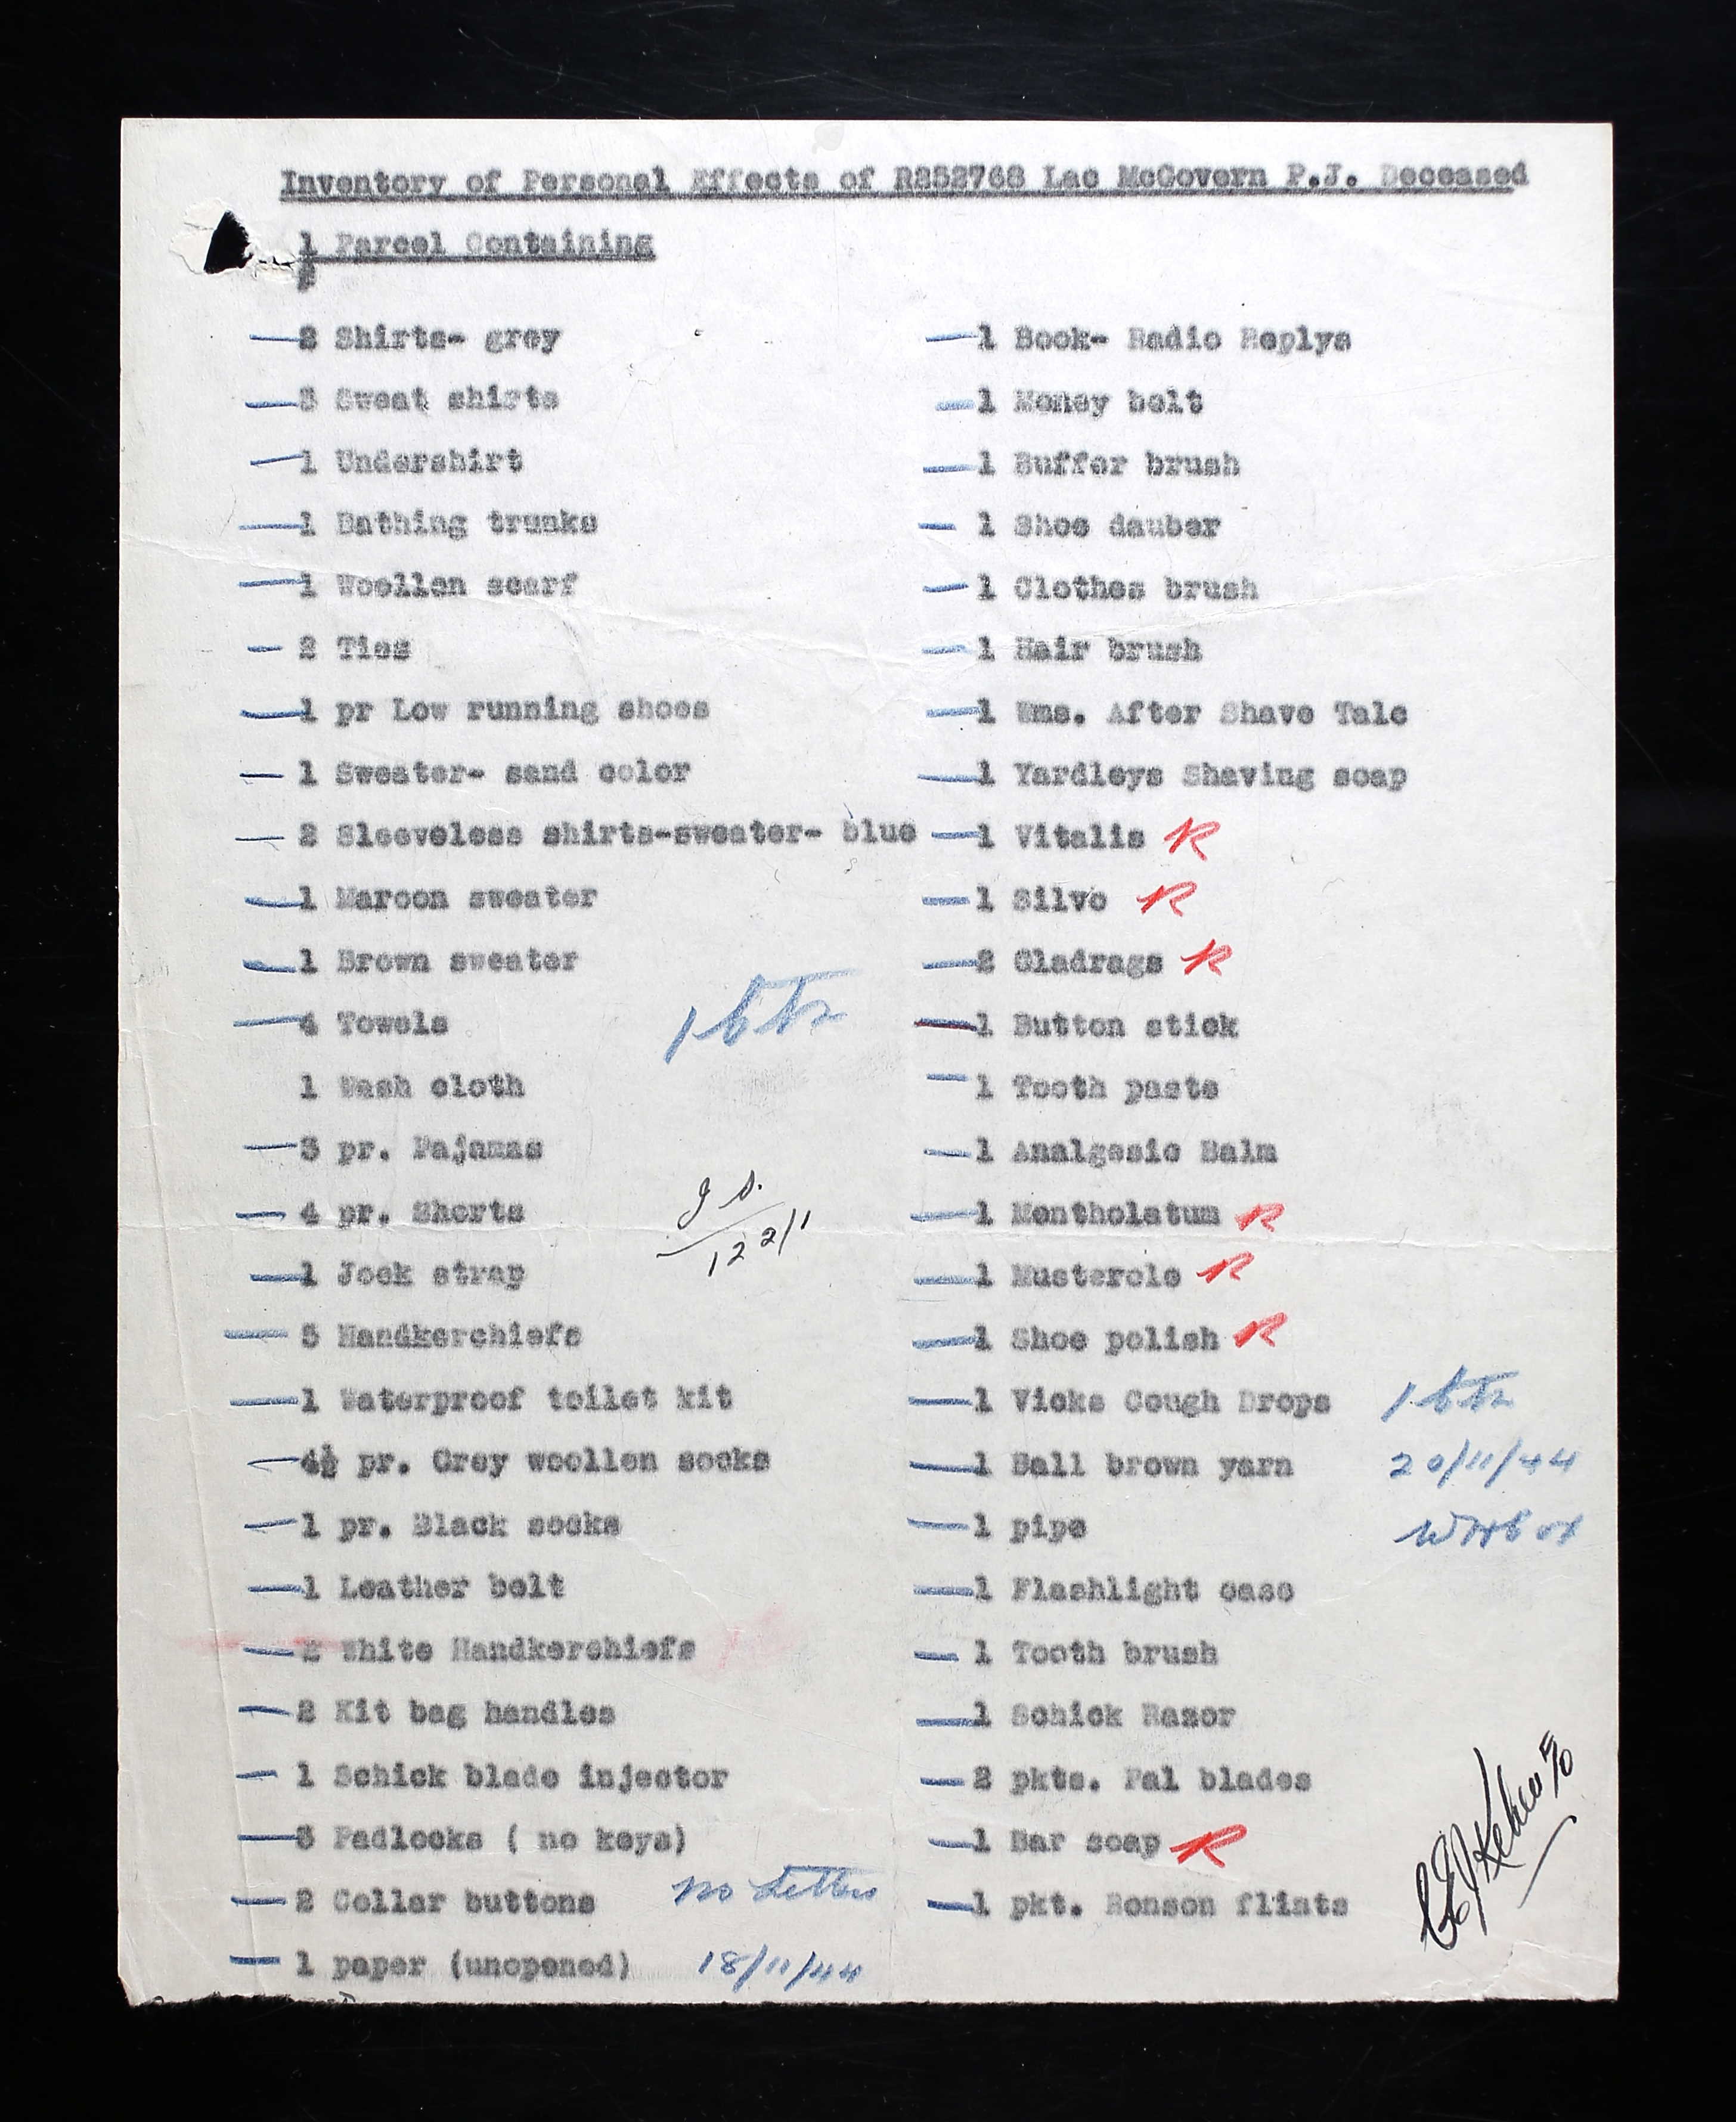 Inventory of Personal Effects of R252768 Lac McGovern P.J. Deceased
1 Parcel Containing
2 Shirts- grey
3 Sweat shirts
1 Undershirt
1 Bathing trunks
1 Woollen scarf
2 Ties
1 pr Low running shoes
1 Sweater- sand color
2 Sleeveless shirts-sweater- blue
1 Maroon sweater
1 Brown sweater
4 Towels
1 Wash cloth
3 pr. Pajamas
4 pr. Shorts
1 Jock strap
5 Handkerchiefs
1 Waterproof toilet kit
4½ pr. Grey woollen socks
1 pr. Black socks
1 Leather belt
2 White Handkerchiefs
2 Kit bag handles
1 Schick blade injector
3 Padlocks ( no keys)
2 Collar buttons
no Letters
1 paper (unopened)
18/11/44
1 Book- Radio Replys
1 Money belt
1 Buffer brush
1 Shoe dauber
1 Clothes brush
1 Hair brush
1 Wms. After Shave Talc
1 Yardleys Shaving soap
1 Vitalis R
1 Silvo R
2 Gladrags R
1 Button stick
1 Tooth paste
1 Analgesic Balm
1 Mentholatum R
1 Musterole R
1 Shoe polish R
1 Vicks Cough Drops
1 Ball brown yarn
20/11/44
1 pipe
1 Flashlight case
1 Tooth brush
1 Schick Razor
2 pkts. Pal blades
1 Bar soap R
1 pkt. Ronson flints